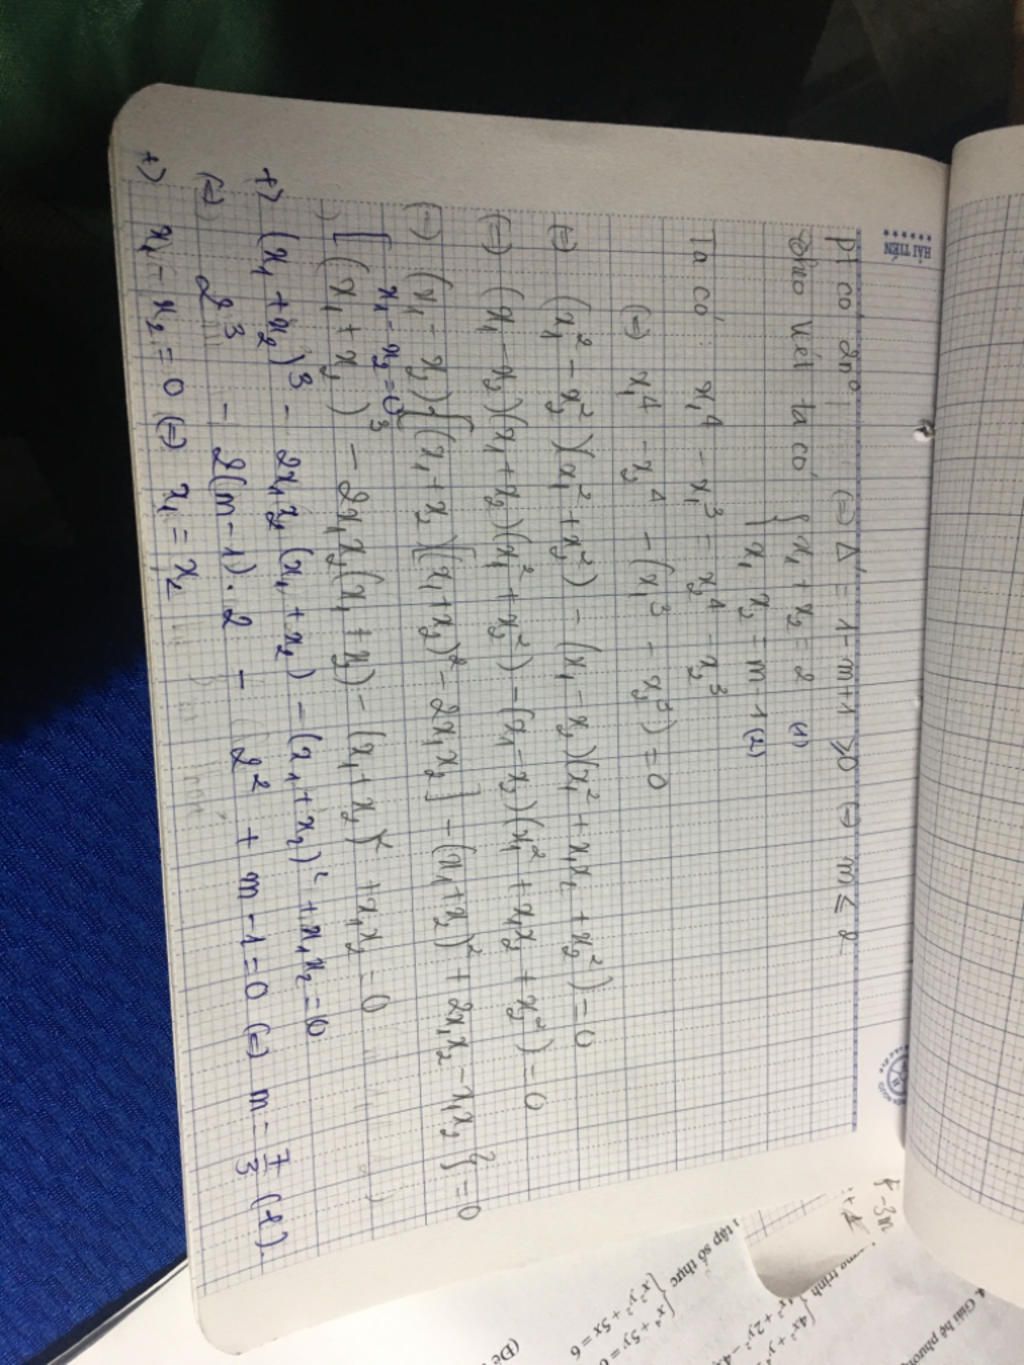 HẢI TIẾN
PT có 2n⁰ (=) Δ' = 1-m+1 ≥0 (=) m ≤ 2
Theo Viét ta có { x₁ + x₂ = 2 (1)
x₁ x₂ = m-1 (2)
Ta có: x₁⁴ - x₁³ = x₂⁴ - x₂³
(=) x₁⁴ - x₂⁴ - (x₁³ - x₂³) = 0
(=) (x₁² - x₂²)(x₁² + x₂²) - (x₁ - x₂)(x₁² + x₁x₂ + x₂²) = 0
(=) (x₁ - x₂)(x₁ + x₂)(x₁² + x₂²) - (x₁ - x₂)(x₁² + x₁x₂ + x₂²) = 0
(=) (x₁ - x₂){(x₁ + x₂)[(x₁ + x₂)² - 2x₁x₂] - (x₁ + x₂)² + 2x₁x₂ - x₁x₂} = 0
[ x₁ - x₂ = 0
(x₁ + x₂)³ - 2x₁x₂(x₁ + x₂) - (x₁ + x₂)² + x₁x₂ = 0
+) (x₁ + x₂)³ - 2x₁x₂(x₁ + x₂) - (x₁ + x₂)² + x₁x₂ = 0
(=) 2³ - 2(m-1).2 - 2² + m-1 = 0 (=) m = 7/3 (l).
+) x₁ - x₂ = 0 (=) x₁ = x₂
4. Giải hệ phươn
{ 4x² + y⁴
x² + 2y² - 4
tập số thực
{ x⁴ + 5y = 6
x²y² + 5x = 6
(Đề